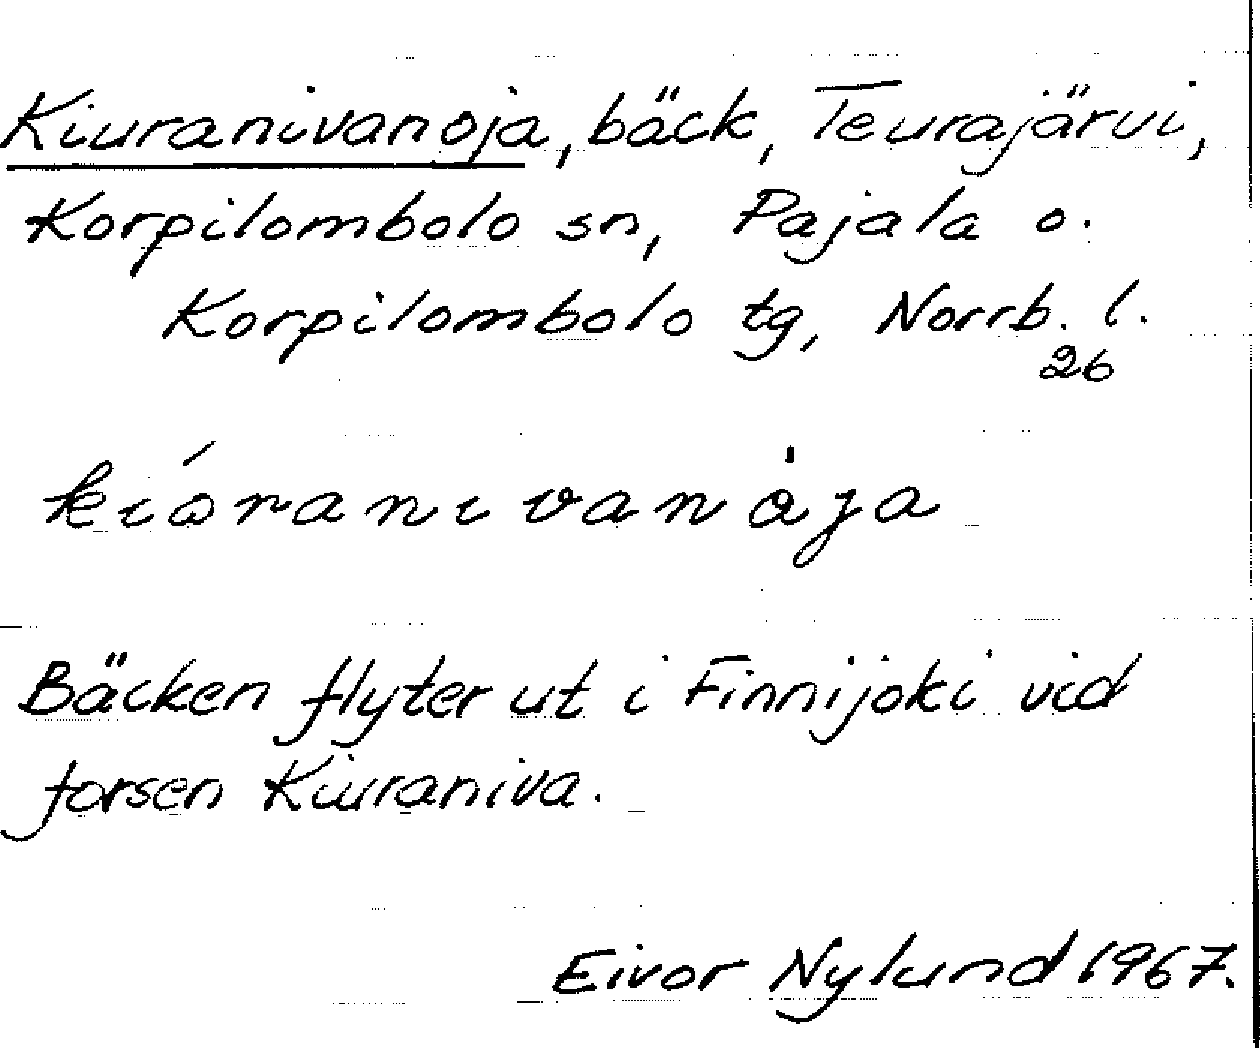 Kiuranivanoja, bäck, Teurajärvi,
Korpilombolo sn, Pajala o.
Korpilombolo tg, Norrb. l.
26
kiòranivanȯja
Bäcken flyter ut i Finnijoki vid
forsen Kiuraniva.
Eivor Nylund 1967.